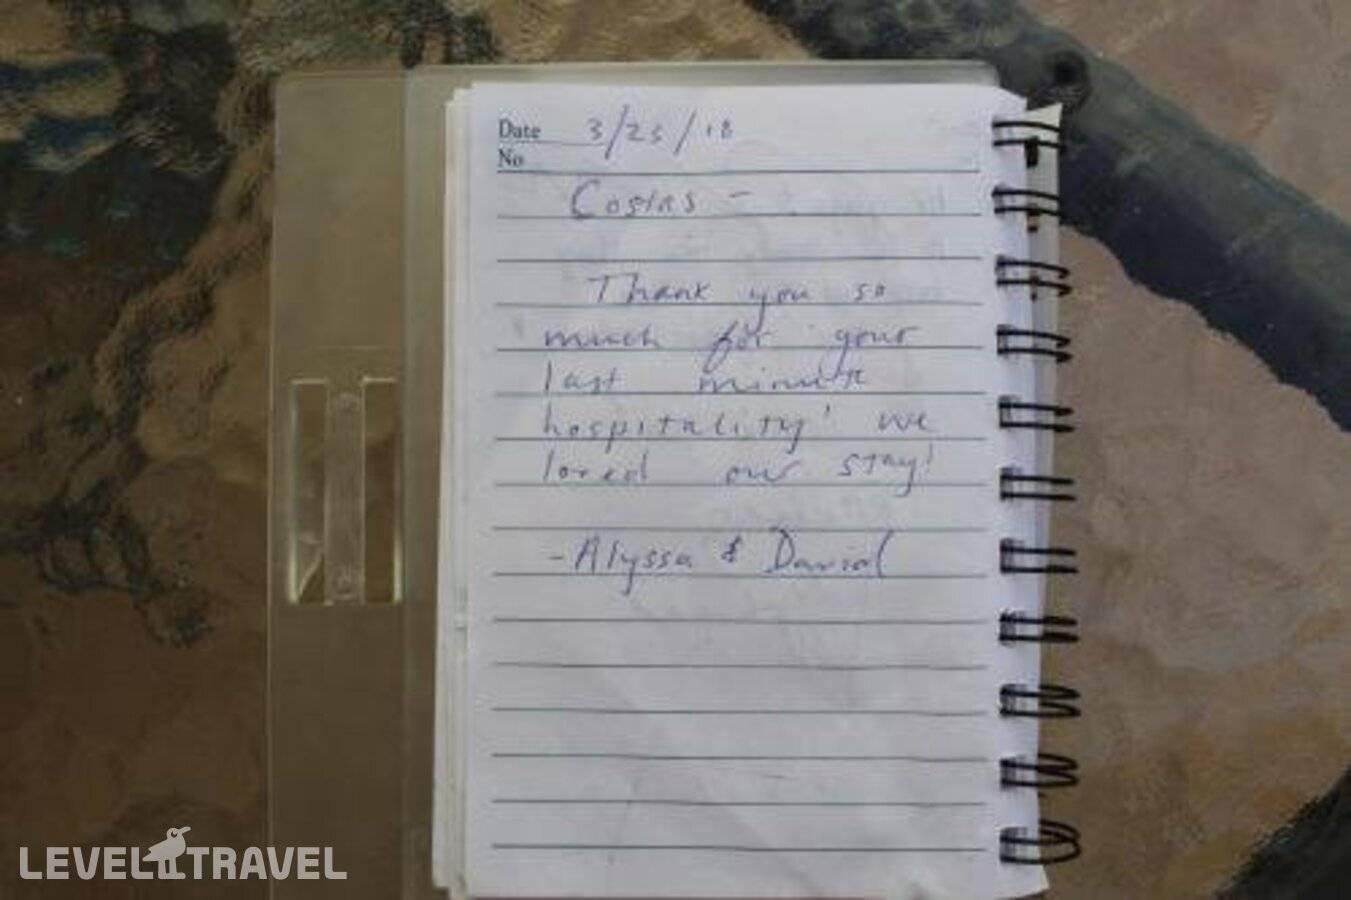 Date 3/23/18
No
Costas -
Thank you so
much for your
last minute
hospitality! We
loved our stay!
- Alyssa & Daniel
LEVEL TRAVEL